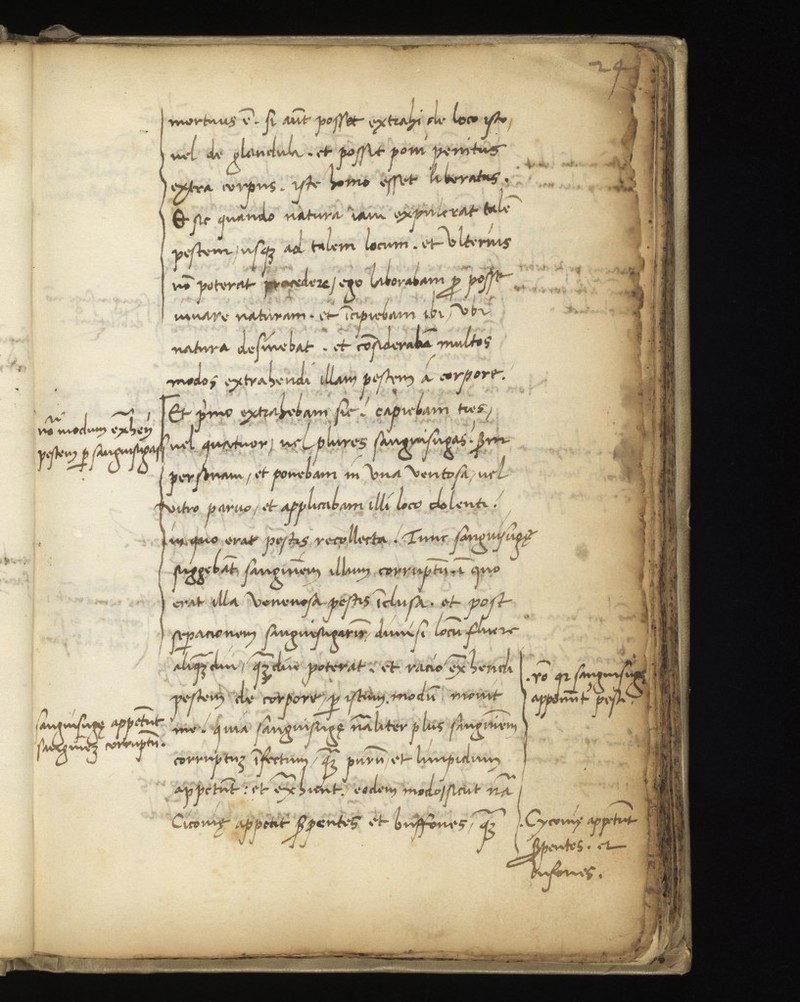 24
mortuus ē. si aūt posset extrahi de loco isto,
uel de glandula. et possit poni penitus
extra corpus. iste homo esset liberatus.
Et sic quando natura iam expulerat talē
pestem, usqꝫ ad talem locum. et Vlterius
nō poterat procedere, ego laborabam ꝓ posse
iuuare naturam. et īcipiebam ibi, Vbi
natura desinebat. et cōsiderabā multos
modos extrahendi illam pestem à corpore.
Et pͥmo extrahebam sic. capiebam tres,
uel quatuor, uel plures sanguisugas.
personam, et ponebam in Vna Ventosa, uel
vitro paruo, et applicabam illi loco dolenti.
in quo erat pestis recollecta. Tunc sanguisugę
suggebāt sanguinem illum corruptū. ī quo
erat illa Venenosa pestis īclusa. et post
seꝑacionem sanguisugarū, dimisi locū fluere
aliqꝫdiu, qꝫdiu poterat. et racio ex̄hendi
pestem de corpore, ꝑ istum modū, mouit
me. quia sanguisugę nāliter plus sanguinem
corruptuꝫ īfectum, qꝫ purū et limpidum
appetūt: et ex̄hūnt. eodem modo sicut nā
Ciconię appetit serpentes et buffones, qꝫ
nō modum ex̄hen
pestem ꝑ sanguisugas
sanguisugę appetūt
sanguineꝫ corruptū.
. rō qꝛ sanguisugę
appetūnt peste.
Cyconię appetūt
serpentes. et
bufones.